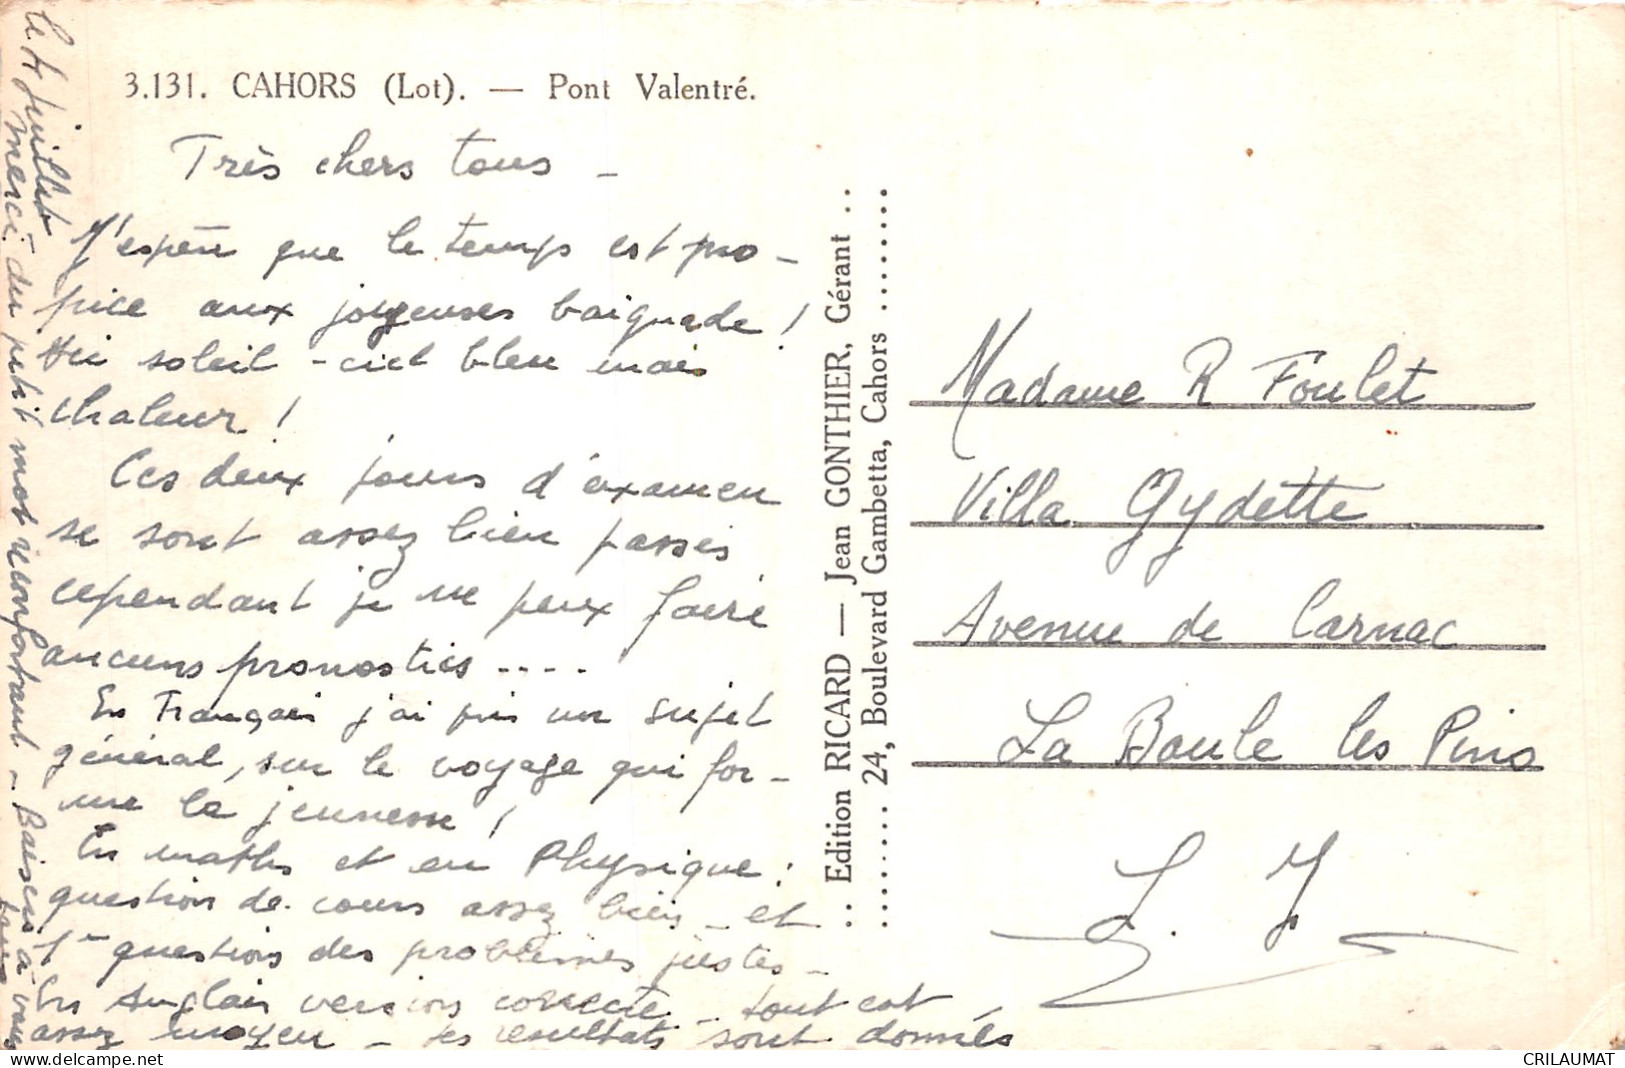 3.131. CAHORS (Lot). — Pont Valentré.
Très chers tous –
J'espère que le temps est pro –
pice aux joyeuses baignade !
Ici soleil – ciel bleu mais
chaleur !
Ces deux jours d'examen
se sont assez bien passés
cependant je ne peux faire
aucuns pronostics ....
En Français j'ai pris un sujet
général, sur le voyage qui for –
me la jeunesse !
En maths et en Physique :
question de cours assez bien – et
1re question des problèmes justes –
En Anglais version correcte – tout est
assez moyen – les résultats sont donnés
le 4 juillet
merci du petit mot réconfortant – Baisers à vous
tous
.. Edition RICARD — Jean GONTHIER, Gérant ..
........ 24, Boulevard Gambetta, Cahors ........
Madame R Foulet
Villa Gydette
Avenue de Carnac
La Baule les Pins
L. J
CRILAUMAT